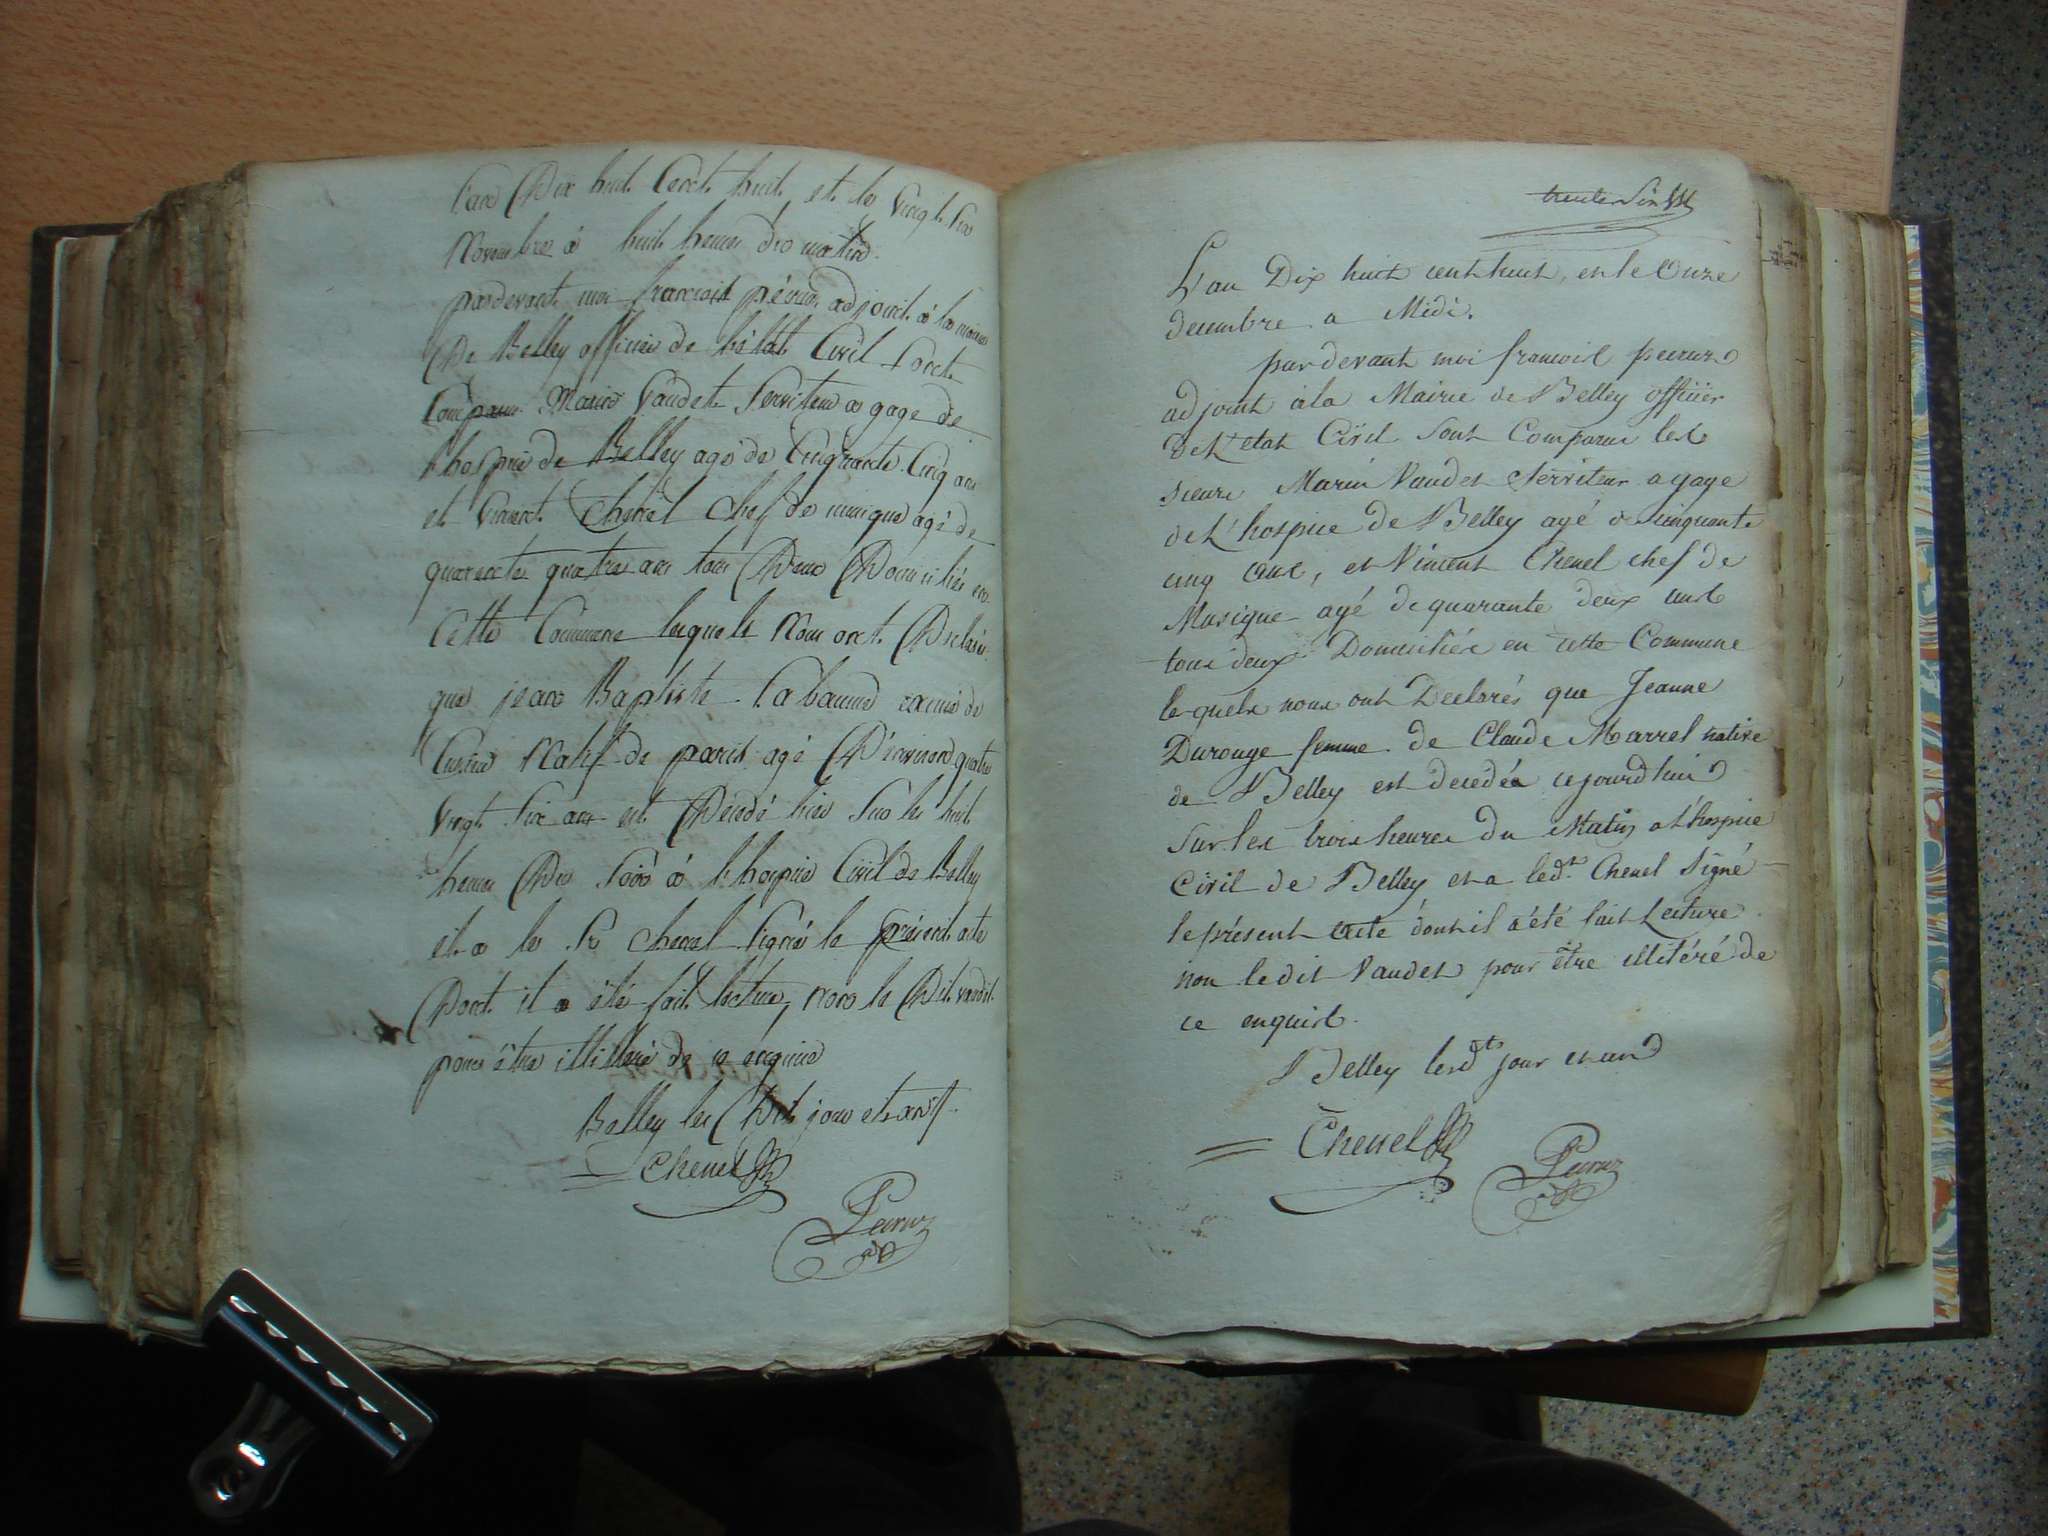 l'an Dix huit Cent huit et le Vingt Six
Novembre à huit heures du matin
pardevant moi françois pécruz adjoint à la mairie
De Belley officier de l'état Civil Sont
Comparus Marin Vaudet Serviteur a gage de
l'hospice de Belley agé de Cinquante Cinq ans
et Vincent Chenel chef de musique agé de
quarente quatre ans tous Deux Domiciliés en
Cette Commune lesquels Nous ont Déclarés
que jean Baptiste Labaume
Natif de paris agé D'environ quatre
Vingt Six ans est Décédé hier Sur les huit
heures Du Soir à l'hospice Civil de Belley
et a le Sr Chenel Signé le présent acte
Dont il a été fait lecture, non le Dit Vaudet
pour être illitéré de ce enquis
Belley les Dit jour et an
Chenel
Pecruz
trente Six
L'an Dix huit cent huit, et le Onze
decembre a Midi.
pardevant moi francois pecruz
adjoint à la Mairie de Belley officier
de L'etat Civil Sont Comparus les
sieurs Marin Vaudet Serviteur a gage
de L'hospice de Belley agé de cinquante
cinq ans, et Vincent Chenel chef de
Musique agé de quarante deux ans
tous deux Domiciliés en cette Commune
lesquels nous ont Declarés que Jeanne
Durouge femme de Claude Marrel native
de Belley est decedée cejourd'hui
sur les trois heures du Matin a l'hospice
Civil de Belley et a led.t Chenel Signé
le présent acte dont il a été fait Lecture
non ledit Vaudet pour être illitéré de
ce enquis.
Belley lesd.ts jour et an
Chenel
Pecruz